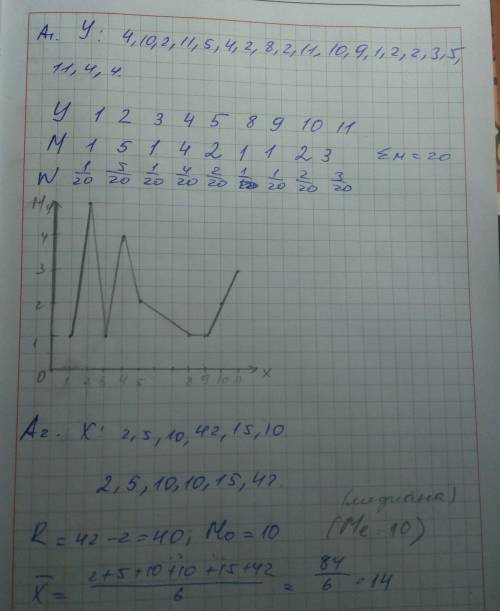 А1. У: 4,10,2,11,5,4,2,8,2,11,10,9,1,2,2,3,5,
11,4,4.
У 1 2 3 4 5 8 9 10 11
М 1 5 1 4 2 1 1 2 3 Σм=20
W 1/20 5/20 1/20 4/20 2/20 1/20 1/20 2/20 3/20
М
4
3
2
1
0 1 2 3 4 5 8 9 10 11 х
А2. Х: 2,5,10,42,15,10.
2,5,10,10,15,42.
(медиана)
R = 42-2=40, Мо=10 (Ме 10)
X̄ = 2+5+10+10+15+42/6 = 84/6 = 14